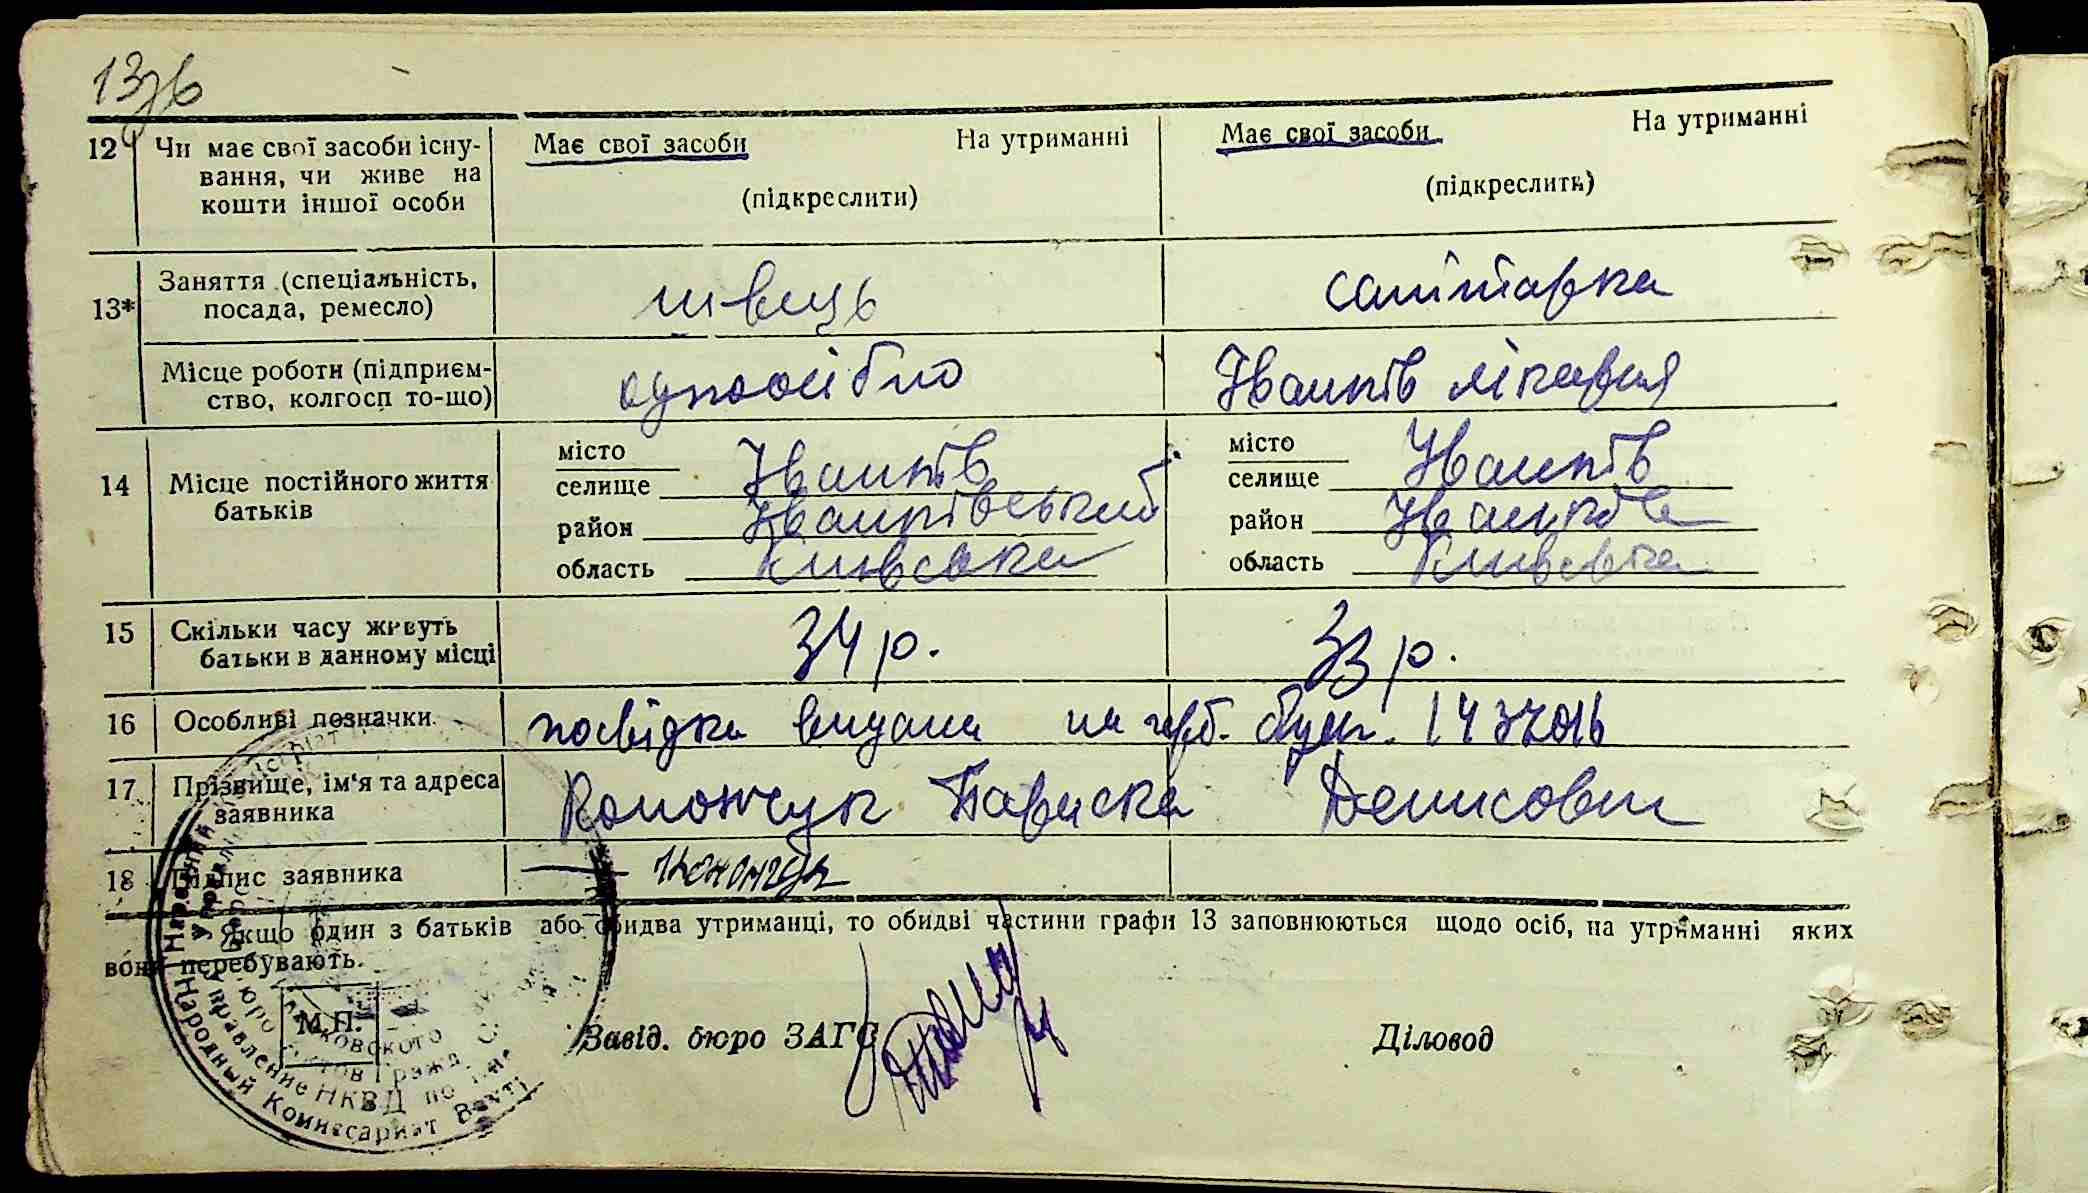 13зв
12 Чи має свої засоби існу- Має свої засоби На утриманні Має свої засоби На утриманні
вання, чи живе на
кошти іншої особи (підкреслити) (підкреслить)
13* Заняття (спеціальність, швець санітарка
посада, ремесло)
Місце роботи (підприєм- одноосібно Іванків лікарня
ство, колгосп то-що)
14 Місце постійного життя місто Іванків місто Іванків
батьків селище селище
район Іванківський район
область Київська область Київська
15 Скільки часу живуть 34 р. 33 р.
батьки в данному місці
16 Особливі позначки посвідка видана на герб. бум.
17 Прізвище, ім'я та адреса Конончук Параска Денисовна
заявника
18 Підпис заявника
Якщо один з батьків або обидва утриманці, то обидві частини графи 13 заповнюються щодо осіб, на утриманні яких
вони перебувають.
М.П.
Завід. бюро ЗАГС Діловод
Управление НКВД по
Народный Комиссариат Внут